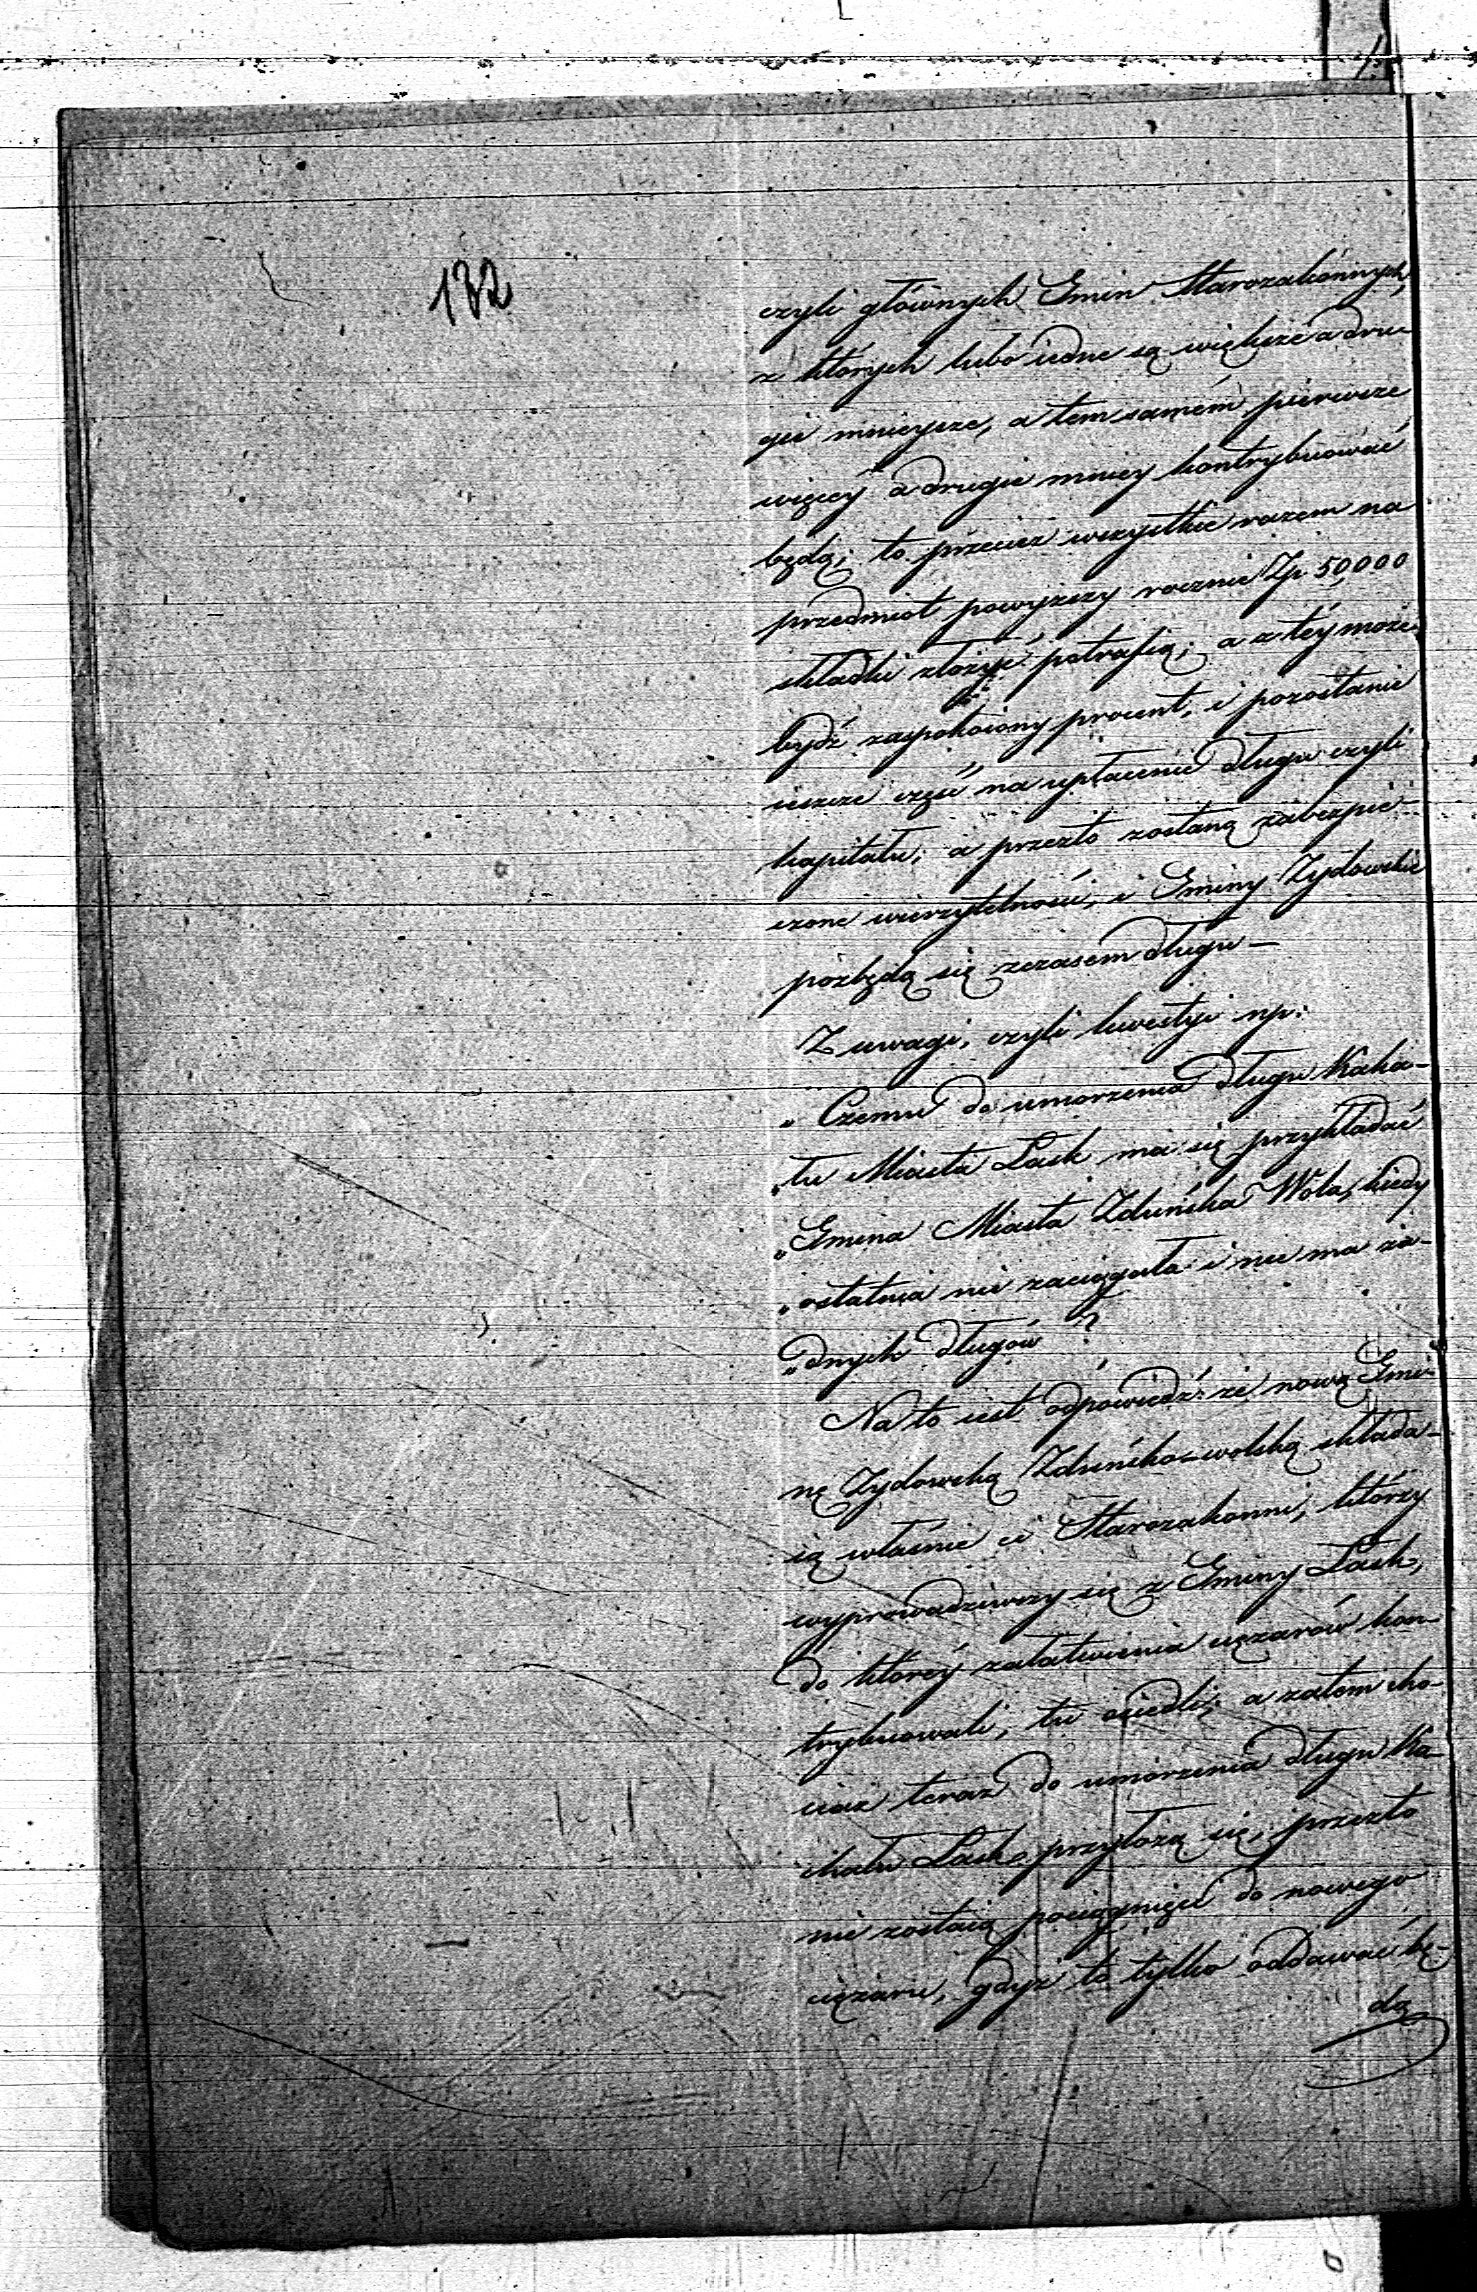 132
czyli głównych Gmin Starozakonnych,
z których lubo iedne są większe a dru-
gie mnieysze, a tem samém pierwsze
więcey a drugie mniey kontrybuować
będą; to przecież wszystkie razem na
przedmiot powyższy rocznie Zp 50,000
składki złożyć potrafią; a z téy może
bydź zaspokoiony procent, i pozostanie
ieszcze część na upłacenie długu czyli
kapitału; a przezto zostaną zabezpie-
czone wierzytelności, i Gminy Żydowskie
pozbędą się zczasem długu —
Z uwagi, czyli kwestyi np:
„Czemu do umorzenia długu Kaha-
„łu Miasta Łask ma się przykładać
„Gmina Miasta Zduńska Wola, kiedy
„ostatnia nie zaciągała i nie ma ża-
„dnych długów?
Na to iest odpowiedź: że nową Gmi-
nę Żydowską Zduńsko-wolską składa-
ią właśnie ci Starozakonni, którzy
wyprowadziwszy się z Gminy Łask,
do któréy załatwienia ciężarów kon-
trybuowali, tu osiedli; a zatem cho-
ciaż teraz do umorzenia długu Ka-
chału Łask przyłożą się, przezto
nie zostaią pociągnięci do nowego
ciężaru, gdyż to tylko oddawać bę-
dą